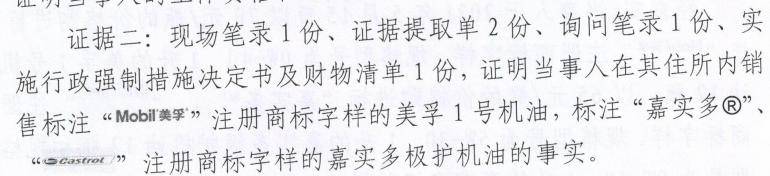 证明当事人的主体资格
证据二：现场笔录1份、证据提取单2份、询问笔录1份、实
施行政强制措施决定书及财物清单1份，证明当事人在其住所内销
售标注“Mobil美孚”注册商标字样的美孚1号机油，标注“嘉实多®”、
“Castrol”注册商标字样的嘉实多极护机油的事实。